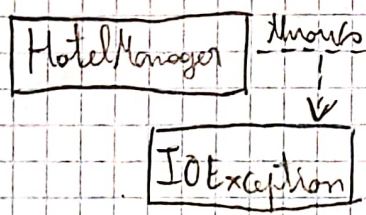 HotelManager throws
IOException